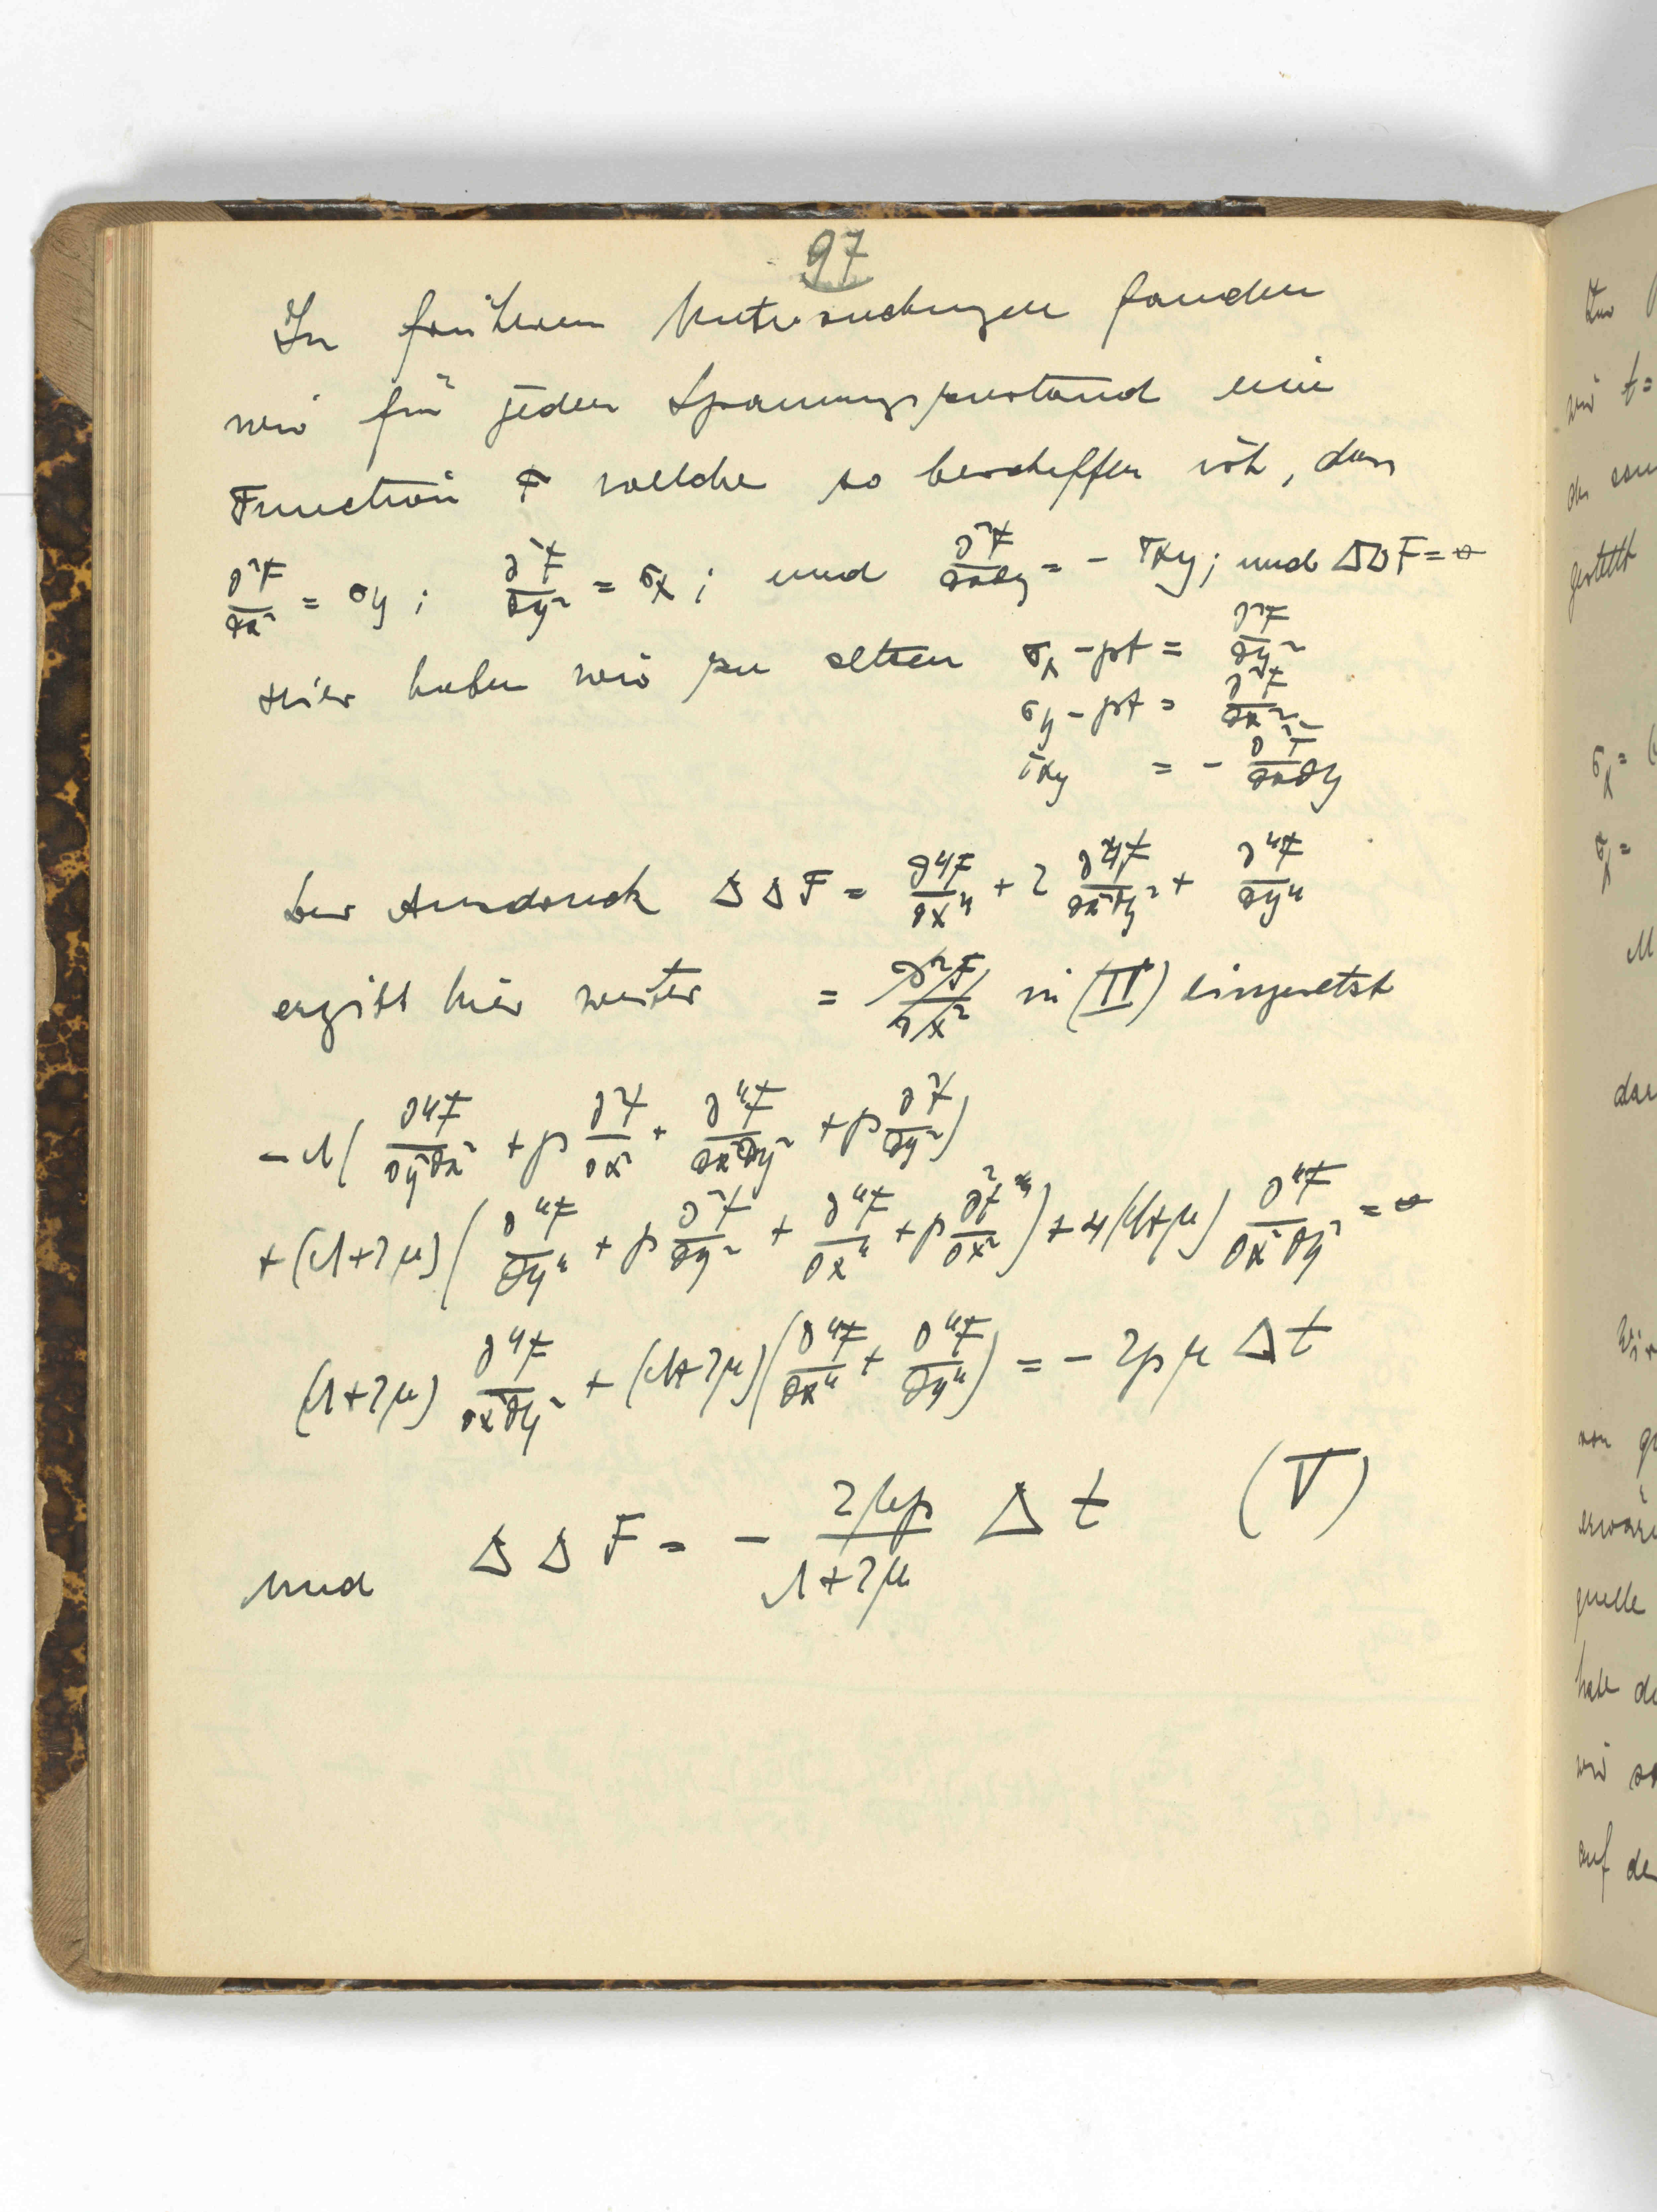 97
In früheren Untersuchungen fanden
wir für jeden Spannungszustand eine
Function F welche so beschaffen ist, dass
∂²F/∂x² = σy ; ∂²F/∂y² = σx ; und ∂²F/∂x∂y = - τxy ; und ΔΔF = 0
Hier haben wir zu setzen σx - pt = ∂²F/∂y²
σy - pt = ∂²F/∂x²
τxy = - ∂²F/∂x∂y
Der Ausdruck ΔΔF = ∂⁴F/∂x⁴ + 2 ∂⁴F/∂x²∂y² + ∂⁴F/∂y⁴
ergibt hier weiter = ∂²F/∂x² in (II) eingesetzt
- λ( ∂⁴F/∂y²∂x² + p ∂²t/∂x² + ∂⁴F/∂x²∂y² + p ∂²t/∂y² )
+ (λ+2μ) ( ∂⁴F/∂y⁴ + p ∂²t/∂y² + ∂⁴F/∂x⁴ + p ∂²t/∂x² ) + 4(λ+μ) ∂⁴F/∂x²∂y² = 0
(λ+2μ) ∂⁴F/∂x²∂y² + (λ+2μ)( ∂⁴F/∂x⁴ + ∂⁴F/∂y⁴ ) = - 2pμ Δt
und ΔΔF = - 2μp/λ+2μ Δ t (V)